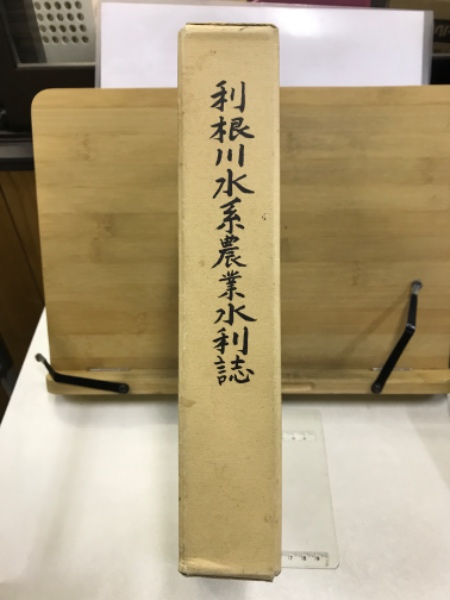 利根川水系農業水利誌